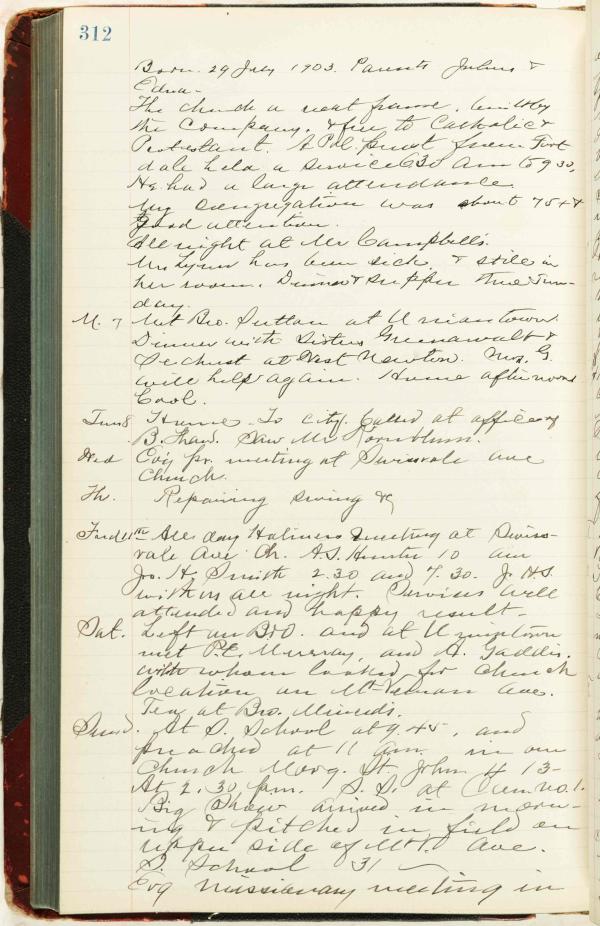 312
Born. 29 July 1903. Parents Julius &
Edna-
The church a neat frame, built by
the Company, & free to Catholic &
Protestant. A Pol. Priest from
dale held a service 6 30 am to 9 30,
He had a large attendance.
My congregation was about 75 & &
good attention.
All night at Mr Campbell's.
Mrs Lynn has been sick & still in
her room. Dinner & supper there Sun-
day.
M. 7 Met Bro. Sutton at Uniontown.
Dinner with Sisters Greenawalt &
Sechrist at West Newton. Mrs. G.
will help again. Home afternoon
Cool.
Tues 8 Home - To city. Called at office of
B. Shaw. Saw Mr Kornblum.
Wed Ev'g pr. meeting at Swissvale Ave
Church.
Th. Repairing swing &c
Frid 11th All day Holiness meeting at Swiss-
vale Ave Ch. A.S. Hunter 10 am
Jos. H. Smith 2.30 and 7.30. J.H.S.
with us all night. Services well
attended and happy result.
Sat. Left on B&O. and at Uniontown
met P.E. Murray, and A. Gaddis.
with whom looked for church
location on Mt Vernon Ave.
Tea at Bro. Minerd's.
Sund. At S. School at 9.45, and
preached at 11 am. in our
Church Morg. St. John 4 13-
At 2.30 pm. S.S. at Cum. no. 1.
Big Show arrived in morn-
ing & pitched in field on
upper side of Mt V Ave.
S. School 31
Evg Missionary meeting in